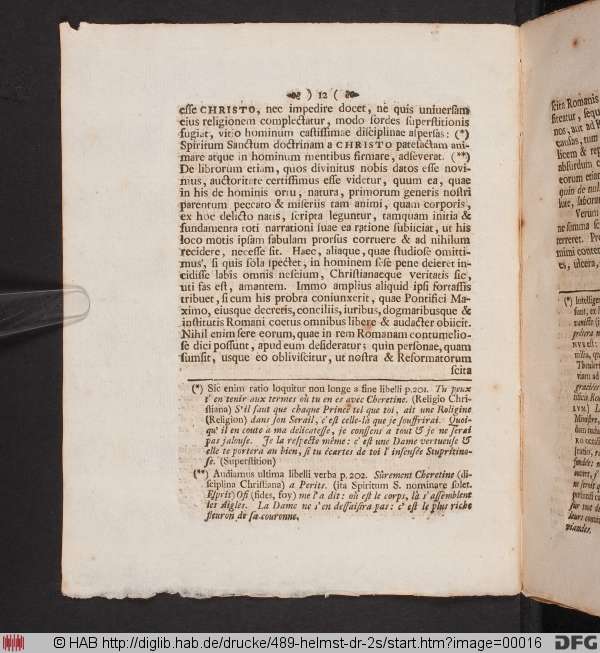 ) 12 (
esse CHRISTO, nec impedire docet, ne quis uniuersam
eius religionem complectatur, modo sordes superstitionis
fugiat, vitio hominum castissimae disciplinae aspersas: (*)
Spiritum Sanctum doctrinam a CHRISTO patefactam ani-
mare atque in hominum mentibus firmare, adseverat. (**)
De librorum etiam, quos divinitus nobis datos esse novi-
mus, auctoritate certissimus esse videtur, quum ea, quae
in his de hominis ortu, natura, primorum generis nostri
parentum peccato & miseriis tam animi, quam corporis,
ex hoc delicto natis, scripta leguntur, tamquam initia &
fundamenta toti narrationi suae ea ratione subiiciat, ut his
loco motis ipsam fabulam prorsus corruere & ad nihilum
recidere, necesse sit. Haec, aliaque, quae studiose omitti-
mus, si quis sola spectet, in hominem sese pene deieret in-
cidisse labis omnis nescium, Christianaeque veritatis sic,
uti fas est, amantem. Immo amplius aliquid ipsi fortassis
tribuet, si cum his probra coniunxerit, quae Pontifici Ma-
ximo, eiusque decretis, conciliis, iuribus, dogmaribusque &
institutis Romani coetus omnibus libere & audacter obiicit.
Nihil enim fere eorum, quae in rem Romanam contumelio-
se dici possunt, apud eum desideratur; quin personae, quam
sumsit, usque eo obliviscitur, ut nostra & Reformatorum
scita
(*) Sic enim ratio loquitur non longe a fine libelli p.201. Tu peux
t'en tenir aux termes où tu en es avec Cheretine. (Religio Chri-
stiana) S'il faut que chaque Prince tel que toi, ait une Roligine
(Religion) dans son Serail, c'est celle-là que je souffrirai. Quoi-
qu'il en coute a ma delicatesse, je consens a tout & je ne serai
pas jalouse. Je la respecte même: c'est une Dame vertueuse &
elle te portera au bien, si tu écartes de toi l'insensée Stupritino-
se. (Superstition)
(**) Audiamus ultima libelli verba p.202. Sûrement Cheretine (di-
sciplina Christiana) a Perits. (ita Spiritum S. nominare solet.
Esprit) Ofi (fides, foy) me l'a dit: où est le corps, là s'assemblent
les aigles. La Dame ne s'en dessaisira pas: c'est le plus riche
fleuron de sa couronne.
scita Romanis
nos, aut ad
caulas, tum
licem & rep
absurdum
eorum etiam
quin de nul
lute, labora
Verum
ne summa
terreret.
mini conten
es, ulcera,
© HAB http://diglib.hab.de/drucke/489-helmst-dr-2s/start.htm?image=00016
DFG